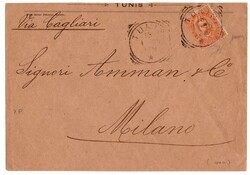 TUNIS
Via Cagliari
Signori Amman & Co
Milano